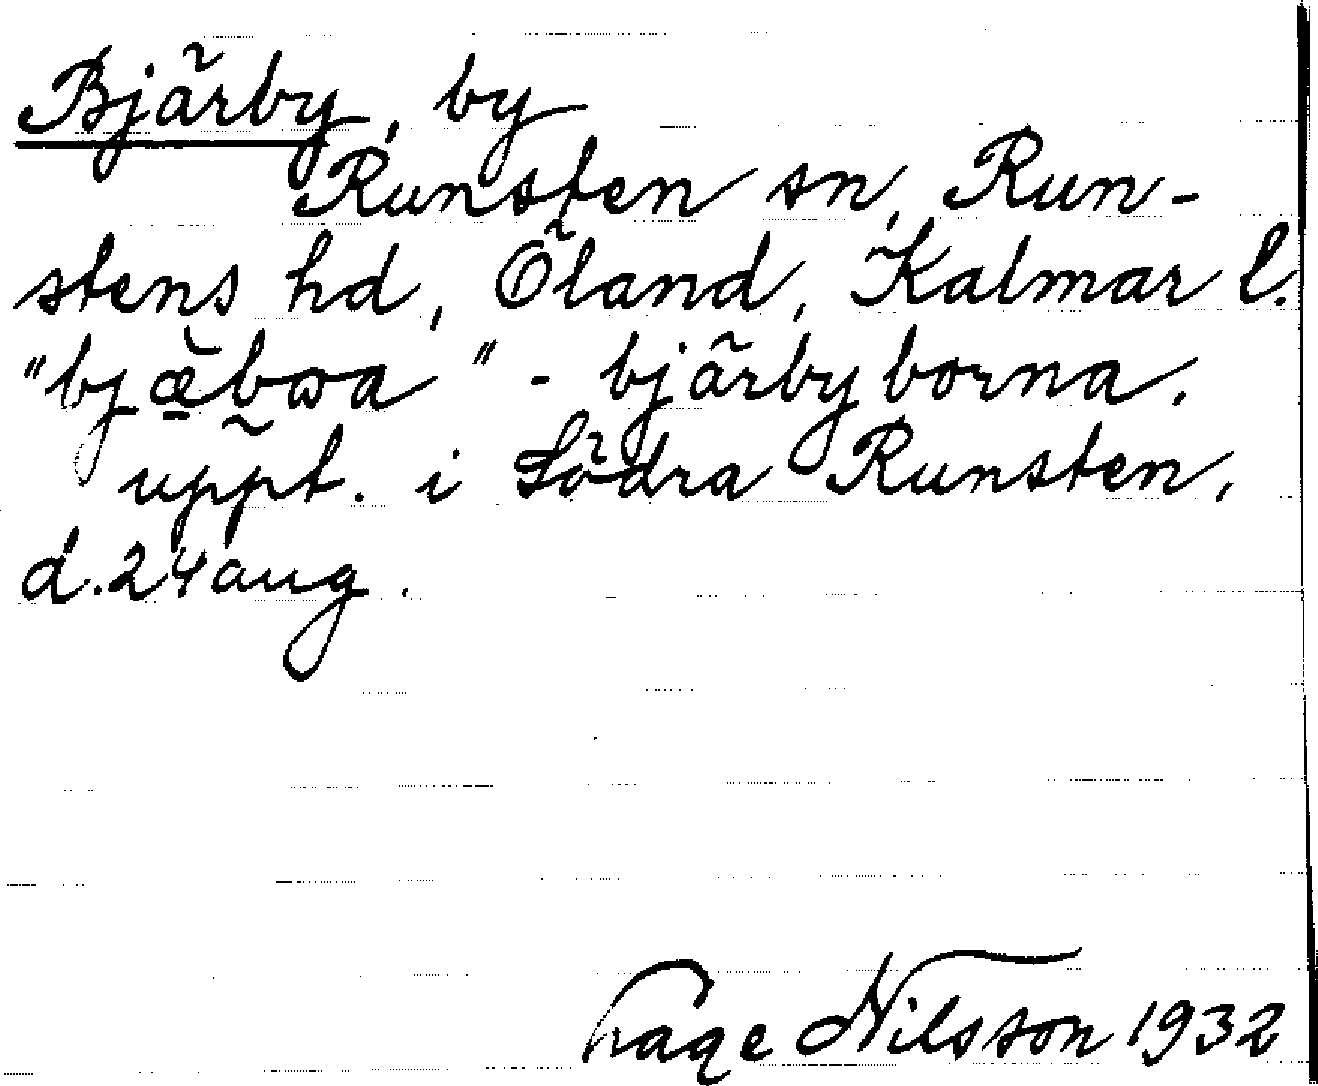 Bjärby, by
Runsten sn, Run-
stens hd, Öland, Kalmar l.
"bjæ̀bωa" - bjärbyborna.
uppt. i Södra Runsten,
d. 24 aug.
Tage Nilsson 1932